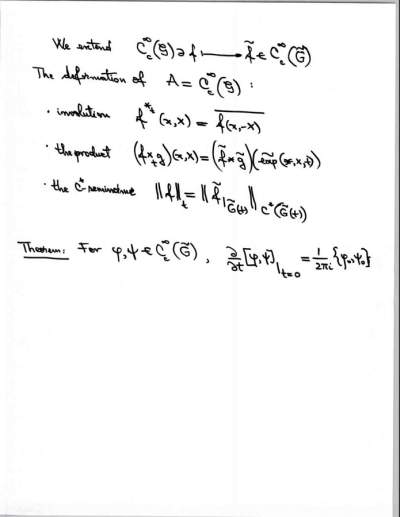 We extend C_c^∞(𝔤) ∋ f ⟼ f̃ ∈ C_c^∞(G̃)
The deformation of A = C_c^∞(𝔤) :
· involution f^{*_t}(x,X) = \overline{f(x,-X)}
· the product (f *_t g)(x,X) = (f̃ * g̃)(exp̃(x,X,t))
· the C*-seminorm ‖f‖_t = ‖f̃|_{G̃(t)}‖_{C*(G̃(t))}
Theorem: For φ,ψ ∈ C_c^∞(G̃) , ∂/∂t [φ,ψ]|_{t=0} = 1/2πi {φ₀,ψ₀}